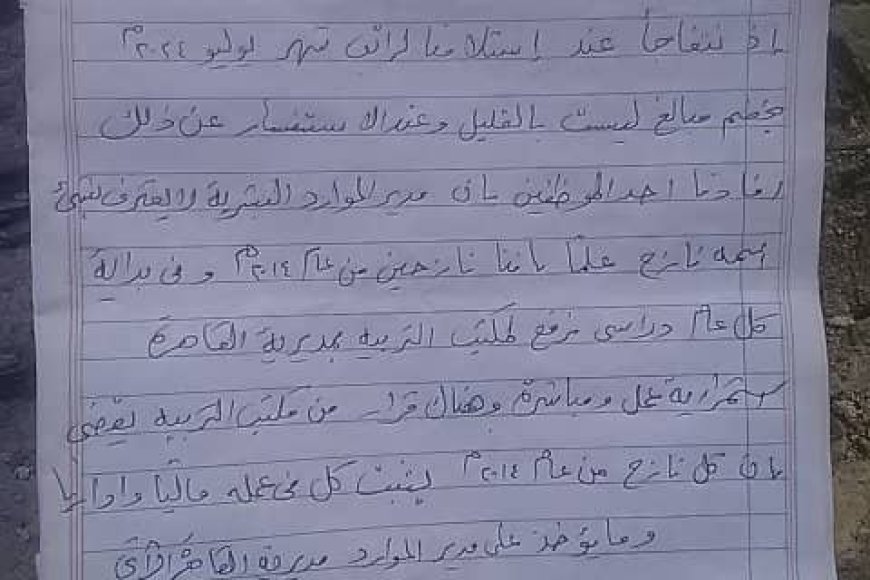 إذ نتفاجأ عند إستلامنا لراتب شهر يوليو ٢٠٢٤م
بخصم مبالغ ليست بالقليل وعند الاستفسار عن ذلك
افادنا احد الموظفين بان مدير الموارد البشرية لا يعترف بشيء
اسمه نازح علماً باننا نازحين من عام ٢٠١٤م و في بداية
كل عام دراسي نرفع لمكتب التربيه بمديرية القاهرة
إستمرارية عمل ومباشرة وهناك قرار من مكتب التربيه يقضي
بان كل نازح من عام ٢٠١٤م يثبت كل في عمله مالياً وادارياً
وما يؤخذ على مدير الموارد مديرية القاهرة